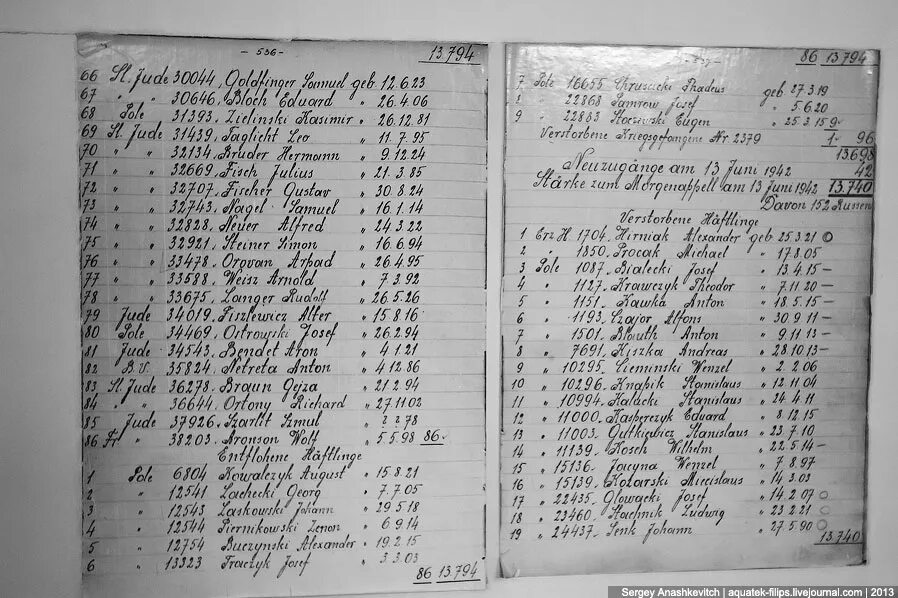 - 536 -
13.794
66 Sl. Jude 30044, Goldfinger Samuel geb. 12.6.23
67 " " 30646, Bloch Eduard " 26.4.06
68 Pole 31393, Zielinski Kasimir " 26.12.81
69 Sl. Jude 31439, Taglicht Leo " 11.7.95
70 " " 32134, Bruder Hermann " 9.12.24
71 " " 32669, Fisch Julius " 21.3.85
72 " " 32707, Fischer Gustav " 30.8.24
73 " " 32743, Nagel Samuel " 16.1.14
74 " " 32828, Neuer Alfred " 24.3.22
75 " " 32921, Steiner Simon " 16.6.94
76 " " 33478, Orovan Arpad " 26.4.95
77 " " 33588, Weisz Arnold " 7.3.92
78 " " 33675, Langer Rudolf " 26.5.26
79 Jude 34019, Piszlewicz Alter " 15.8.16
80 Pole 34469, Ostrowski Josef " 26.2.94
81 Jude 34543, Bendet Aron " 4.1.21
82 B.V. 35824, Netreta Anton " 4.12.86
83 Sl. Jude 36278, Braun Gejza " 21.2.94
84 " " 36644, Ortony Richard " 27.11.02
85 Jude 37926, Szarlit Szmul " 2.2.78
86 Fr " 38203, Aronson Wolf " 5.5.98 86.
Entflohene Häftlinge
1 Pole 6804 Kowalczyk August " 15.8.21
2 " 12541 Lachecki Georg " 7.7.05
3 " 12543 Laskowski Johann " 29.5.18
4 " 12544 Piernikowski Zenon " 6.9.14
5 " 12754 Buczynski Alexander " 19.2.15
6 " 13323 Traczyk Josef " 3.3.03
86 13.794
86 13.794
7 Pole 16655 Chrusicki Thadeus geb 27.3.19
" 22868 Pamrow Josef " 5.6.20
9 " 22883 Staczewski Eugen " 25.3.15 9
Verstorbene Kriegsgefangene Nr. 2379 1 96
13.698
Neuzugänge am 13 Juni 1942 42
Stärke zum Morgenappell am 13 Juni 1942 13.740
Davon 152 Russen
Verstorbene Häftlinge
1 Erz. H. 1704, Hirniak Alexander geb 25.3.21
2 " 1850, Procak Michael " 17.8.05
3 Pole 1087, Bialecki Josef " 13.4.15 —
4 " 1127, Krawczyk Theodor " 7.11.20 —
5 " 1151, Kawka Anton " 18.5.15 —
6 " 1193, Czajor Alfons " 30.9.11 —
7 " 1501, Blauth Anton " 9.11.13 —
8 " 7691, Kyszka Andreas " 28.10.13 —
9 " 10295, Cieminski Wenzel " 2.2.06
10 " 10296, Knapik Stanislaus " 12.11.04
11 " 10994, Kalacki Stanislaus " 24.4.11
12 " 11000, Kasperczyk Eduard " 8.12.15
13 " 11003, Gutkiewicz Stanislaus " 23.7.10
14 " 11139, Kosch Wilhelm " 22.5.14 —
15 " 15136, Jacyna Wenzel " 7.8.97
16 " 15139, Kotarski Miecislaus " 14.3.03
17 " 22435, Glowacki Josef " 14.2.07
18 " 23460, Stachnik Ludwig " 23.2.21
19 " 24437, Senk Johann " 27.5.90
13.740
Sergey Anashkevitch | aquatek-filips.livejournal.com | 2013